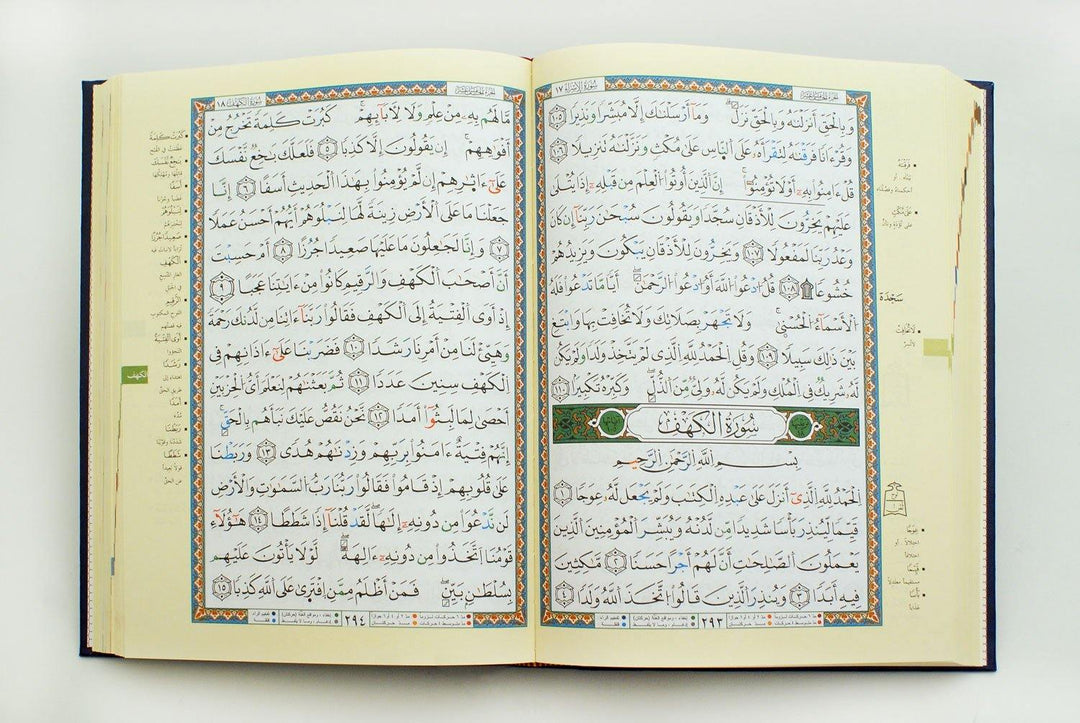 سورة الإسراء ١٧
وَبِالْحَقِّ أَنزَلْنَاهُ وَبِالْحَقِّ نَزَلَ ۗ وَمَا أَرْسَلْنَاكَ إِلَّا مُبَشِّرًا وَنَذِيرًا ١٠٥
وَقُرْءَانًا فَرَقْنَاهُ لِتَقْرَأَهُ عَلَى النَّاسِ عَلَىٰ مُكْثٍ وَنَزَّلْنَاهُ تَنزِيلًا ١٠٦
قُلْ ءَامِنُوا بِهِ أَوْ لَا تُؤْمِنُوا ۚ إِنَّ الَّذِينَ أُوتُوا الْعِلْمَ مِن قَبْلِهِ إِذَا يُتْلَىٰ
عَلَيْهِمْ يَخِرُّونَ لِلْأَذْقَانِ سُجَّدًا وَيَقُولُونَ سُبْحَٰنَ رَبِّنَا إِن كَانَ
وَعْدُ رَبِّنَا لَمَفْعُولًا ١٠٧ وَيَخِرُّونَ لِلْأَذْقَانِ يَبْكُونَ وَيَزِيدُهُمْ
خُشُوعًا ۩ ١٠٨ قُلِ ادْعُوا اللَّهَ أَوِ ادْعُوا الرَّحْمَٰنَ ۖ أَيًّا مَّا تَدْعُوا فَلَهُ
الْأَسْمَاءُ الْحُسْنَىٰ ۚ وَلَا تَجْهَرْ بِصَلَاتِكَ وَلَا تُخَافِتْ بِهَا وَابْتَغِ
بَيْنَ ذَٰلِكَ سَبِيلًا ١٠٩ وَقُلِ الْحَمْدُ لِلَّهِ الَّذِي لَمْ يَتَّخِذْ وَلَدًا وَلَمْ يَكُن
لَّهُ شَرِيكٌ فِي الْمُلْكِ وَلَمْ يَكُن لَّهُ وَلِيٌّ مِّنَ الذُّلِّ ۖ وَكَبِّرْهُ تَكْبِيرًا ١١٠
سُورَةُ الْكَهْفِ
بِسْمِ اللَّهِ الرَّحْمَٰنِ الرَّحِيمِ
الْحَمْدُ لِلَّهِ الَّذِي أَنزَلَ عَلَىٰ عَبْدِهِ الْكِتَٰبَ وَلَمْ يَجْعَل لَّهُ عِوَجًا ١
قَيِّمًا لِّيُنذِرَ بَأْسًا شَدِيدًا مِّن لَّدُنْهُ وَيُبَشِّرَ الْمُؤْمِنِينَ الَّذِينَ
يَعْمَلُونَ الصَّٰلِحَٰتِ أَنَّ لَهُمْ أَجْرًا حَسَنًا ٢ مَّٰكِثِينَ
فِيهِ أَبَدًا ٣ وَيُنذِرَ الَّذِينَ قَالُوا اتَّخَذَ اللَّهُ وَلَدًا ٤
٢٩٣
سَجْدَة
سورة الكهف ١٨
مَّا لَهُم بِهِ مِنْ عِلْمٍ وَلَا لِآبَائِهِمْ ۚ كَبُرَتْ كَلِمَةً تَخْرُجُ مِنْ
أَفْوَٰهِهِمْ ۚ إِن يَقُولُونَ إِلَّا كَذِبًا ٥ فَلَعَلَّكَ بَٰخِعٌ نَّفْسَكَ
عَلَىٰ ءَاثَٰرِهِمْ إِن لَّمْ يُؤْمِنُوا بِهَٰذَا الْحَدِيثِ أَسَفًا ٦ إِنَّا
جَعَلْنَا مَا عَلَى الْأَرْضِ زِينَةً لَّهَا لِنَبْلُوَهُمْ أَيُّهُمْ أَحْسَنُ عَمَلًا
٧ وَإِنَّا لَجَٰعِلُونَ مَا عَلَيْهَا صَعِيدًا جُرُزًا ٨ أَمْ حَسِبْتَ
أَنَّ أَصْحَٰبَ الْكَهْفِ وَالرَّقِيمِ كَانُوا مِنْ ءَايَٰتِنَا عَجَبًا ٩
إِذْ أَوَى الْفِتْيَةُ إِلَى الْكَهْفِ فَقَالُوا رَبَّنَا ءَاتِنَا مِن لَّدُنكَ رَحْمَةً
وَهَيِّئْ لَنَا مِنْ أَمْرِنَا رَشَدًا ١٠ فَضَرَبْنَا عَلَىٰ ءَاذَانِهِمْ فِي
الْكَهْفِ سِنِينَ عَدَدًا ١١ ثُمَّ بَعَثْنَٰهُمْ لِنَعْلَمَ أَيُّ الْحِزْبَيْنِ
أَحْصَىٰ لِمَا لَبِثُوا أَمَدًا ١٢ نَّحْنُ نَقُصُّ عَلَيْكَ نَبَأَهُم بِالْحَقِّ ۚ
إِنَّهُمْ فِتْيَةٌ ءَامَنُوا بِرَبِّهِمْ وَزِدْنَٰهُمْ هُدًى ١٣ وَرَبَطْنَا
عَلَىٰ قُلُوبِهِمْ إِذْ قَامُوا فَقَالُوا رَبُّنَا رَبُّ السَّمَٰوَٰتِ وَالْأَرْضِ
لَن نَّدْعُوَا مِن دُونِهِ إِلَٰهًا ۖ لَّقَدْ قُلْنَا إِذًا شَطَطًا ١٤ هَٰؤُلَاءِ
قَوْمُنَا اتَّخَذُوا مِن دُونِهِ ءَالِهَةً ۖ لَّوْلَا يَأْتُونَ عَلَيْهِم
بِسُلْطَٰنٍ بَيِّنٍ ۖ فَمَنْ أَظْلَمُ مِمَّنِ افْتَرَىٰ عَلَى اللَّهِ كَذِبًا ١٥
٢٩٤
الكهف